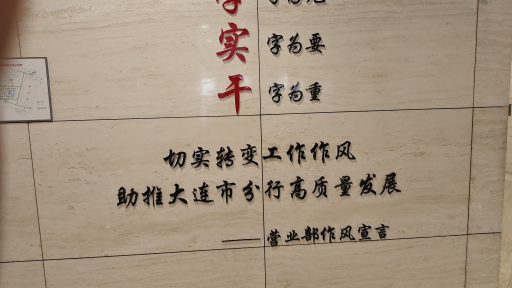 实 字为要
干 字为重
切实转变工作作风
助推大连市分行高质量发展
——营业部作风宣言